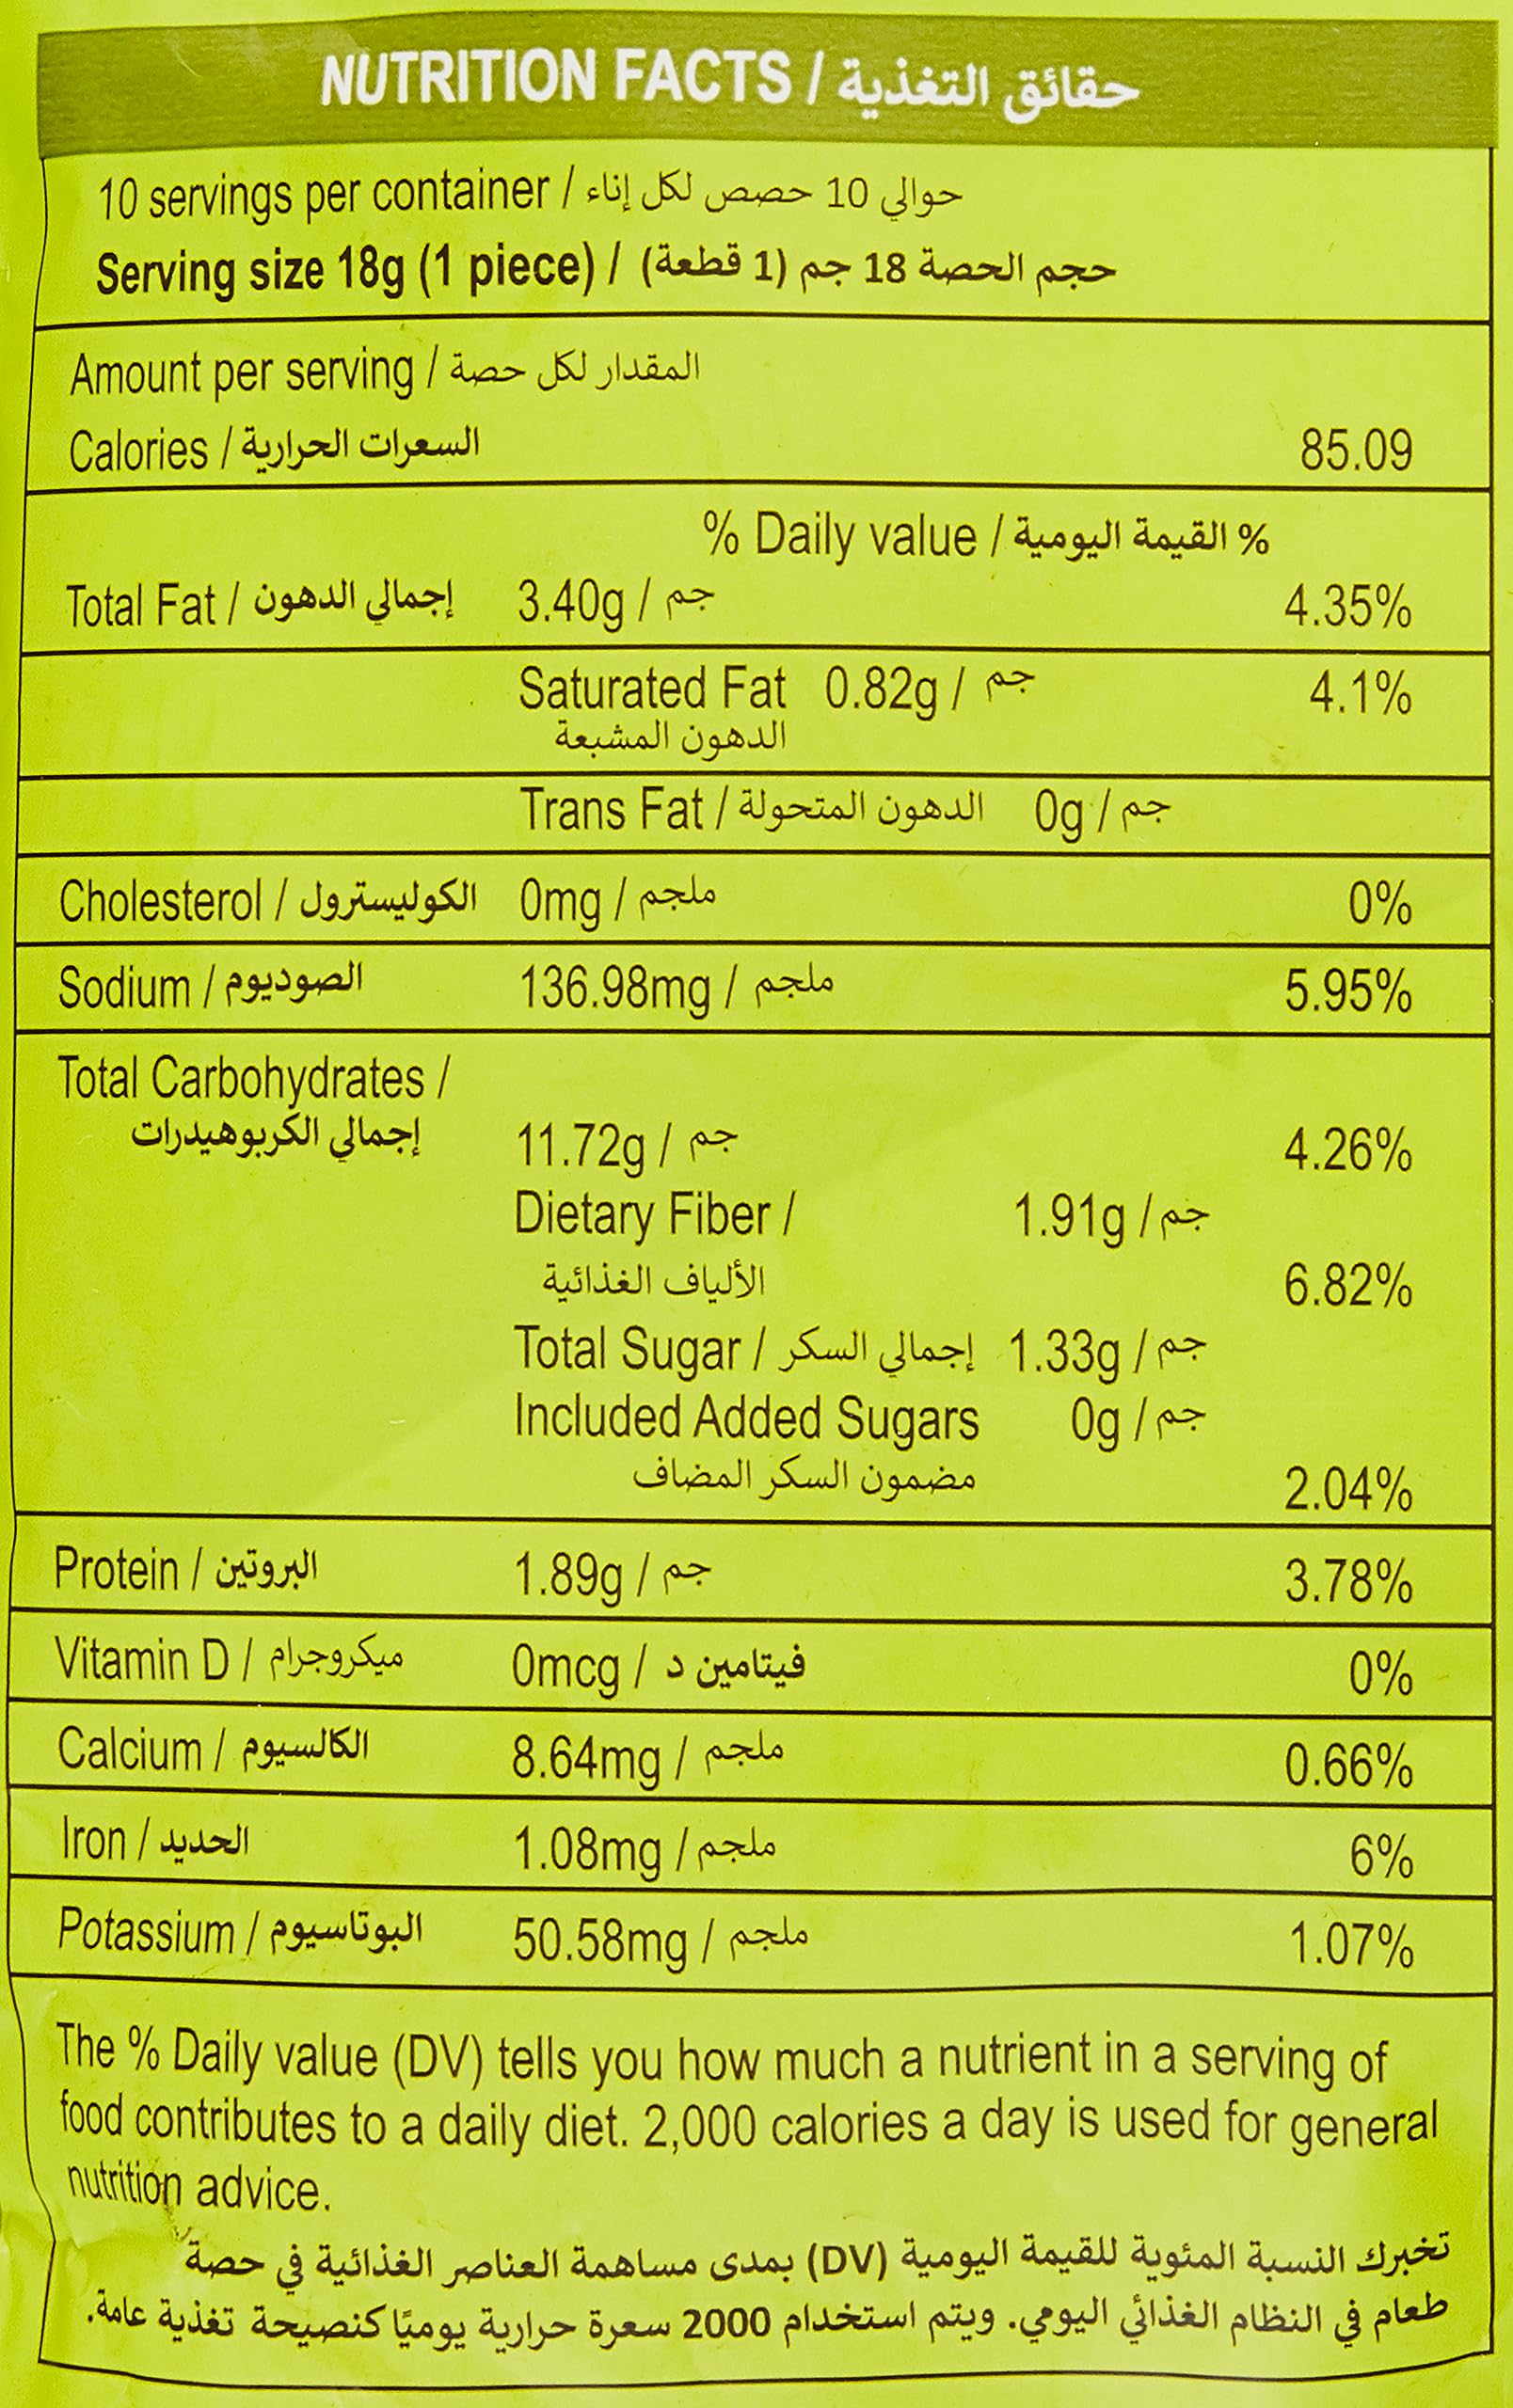 NUTRITION FACTS / حقائق التغذية
10 servings per container / حوالي 10 حصص لكل إناء
Serving size 18g (1 piece) / حجم الحصة 18 جم (1 قطعة)
Amount per serving / المقدار لكل حصة
Calories / السعرات الحرارية 85.09
% Daily value / القيمة اليومية %
Total Fat / إجمالي الدهون 3.40g / جم 4.35%
Saturated Fat 0.82g / جم 4.1%
الدهون المشبعة
Trans Fat / الدهون المتحولة 0g / جم
Cholesterol / الكوليسترول 0mg / ملجم 0%
Sodium / الصوديوم 136.98mg / ملجم 5.95%
Total Carbohydrates /
إجمالي الكربوهيدرات 11.72g / جم 4.26%
Dietary Fiber / 1.91g / جم
الألياف الغذائية 6.82%
Total Sugar / إجمالي السكر 1.33g / جم
Included Added Sugars 0g / جم
مضمون السكر المضاف 2.04%
Protein / البروتين 1.89g / جم 3.78%
Vitamin D / ميكروجرام 0mcg / فيتامين د 0%
Calcium / الكالسيوم 8.64mg / ملجم 0.66%
Iron / الحديد 1.08mg / ملجم 6%
Potassium / البوتاسيوم 50.58mg / ملجم 1.07%
The % Daily value (DV) tells you how much a nutrient in a serving of
food contributes to a daily diet. 2,000 calories a day is used for general
nutrition advice.
تخبرك النسبة المئوية للقيمة اليومية (DV) بمدى مساهمة العناصر الغذائية في حصة
طعام في النظام الغذائي اليومي. ويتم استخدام 2000 سعرة حرارية يوميًا كنصيحة تغذية عامة.